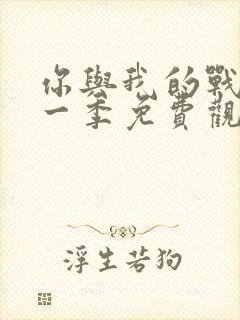 你與我的戰
一季免費觀
浮生若狗